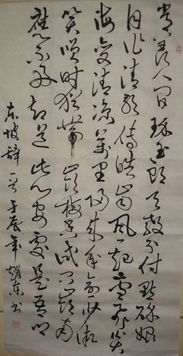 常羡人间琢玉郎天教分付点酥娘
自作清歌传皓齿风起雪飞炎
海变清凉万里归来年愈少微
笑笑时犹带岭梅香试问岭南
应不好却道此心安处是吾乡
东坡辞一首壬辰年东书